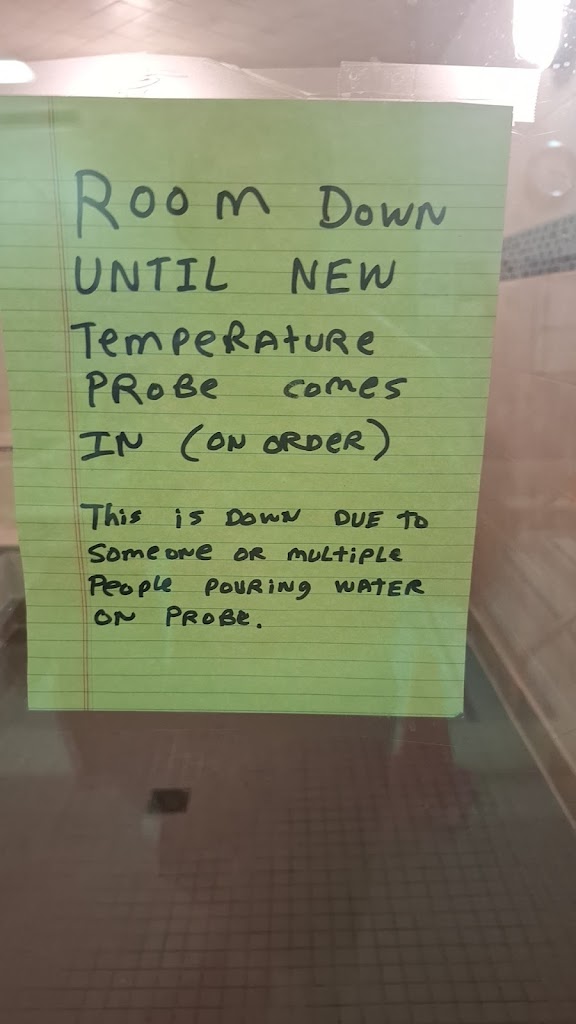 ROOM DOWN
UNTIL NEW
TemPeRAtURe
PROBe comes
IN (ON ORDeR)
This is DOWN DUE to
Someone OR mULtiPLe
PeoPLe POURING WATER
ON PROBe.